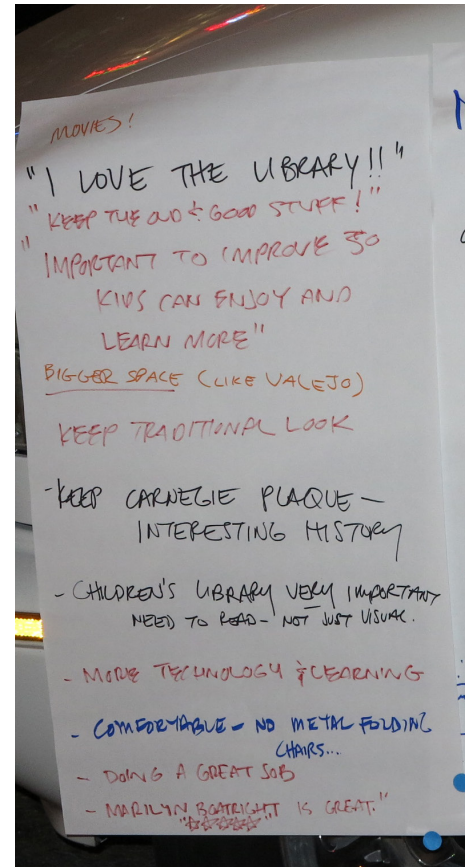 MOVIES!
"I LOVE THE LIBRARY!!"
"KEEP THE OLD & GOOD STUFF!"
"IMPORTANT TO IMPROVE SO
KIDS CAN ENJOY AND
LEARN MORE"
BIGGER SPACE (LIKE VALEJO)
KEEP TRADITIONAL LOOK
-KEEP CARNEGIE PLAQUE -
INTERESTING HISTORY
- CHILDREN'S LIBRARY VERY IMPORTANT
NEED TO READ - NOT JUST VISUAL.
- MORE TECHNOLOGY & LEARNING
- COMFORTABLE - NO METAL FOLDING
CHAIRS...
- DOING A GREAT JOB
- MARILYN BOATRIGHT IS GREAT."
"☆☆☆☆☆"